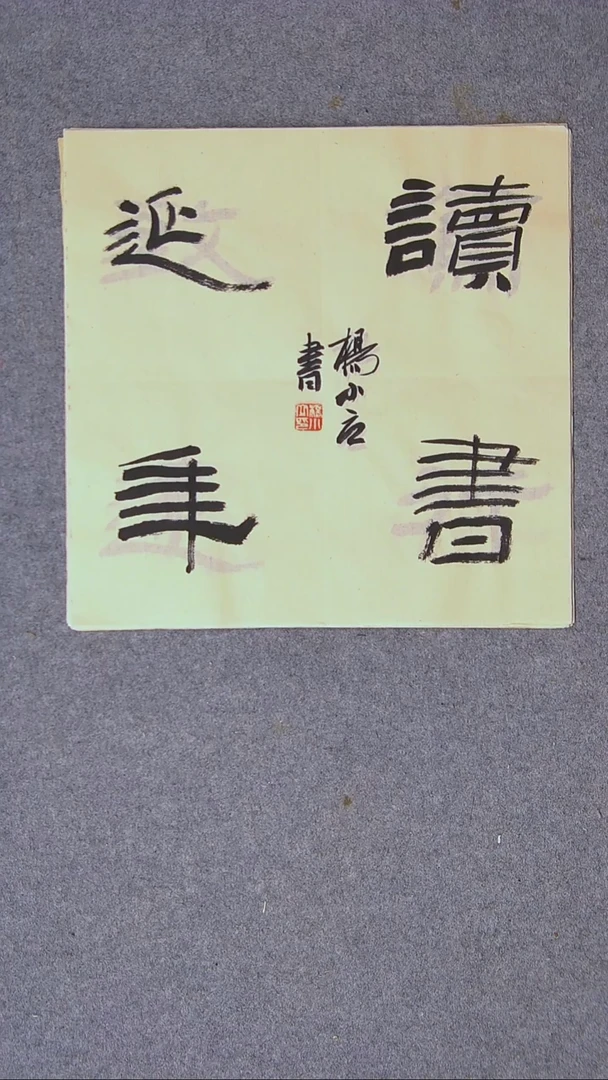 讀書
延年
楊小
書